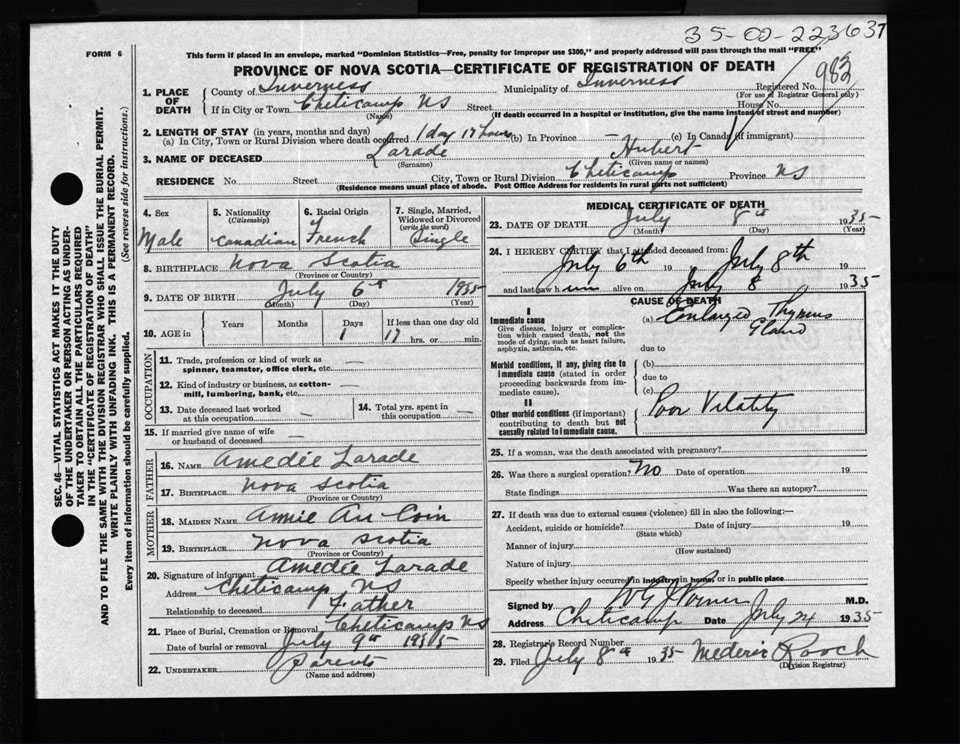 35-02-223637
FORM 6
This form if placed in an envelope, marked "Dominion Statistics—Free, penalty for improper use $300," and properly addressed will pass through the mail "FREE"
PROVINCE OF NOVA SCOTIA—CERTIFICATE OF REGISTRATION OF DEATH
1. PLACE OF DEATH
County of Inverness Municipality of Inverness Registered No. 983
(For use of Registrar General only)
If in City or Town Cheticamp NS Street House No.
(Name) (If death occurred in a hospital or institution, give the name instead of street and number)
2. LENGTH OF STAY (in years, months and days)
(a) In City, Town or Rural Division where death occurred 1 day 17 hours (b) In Province — (c) In Canada (if immigrant)
3. NAME OF DECEASED Larade Hubert
(Surname) (Given name or names)
RESIDENCE No. Street City, Town or Rural Division Cheticamp Province NS
(Residence means usual place of abode. Post Office Address for residents in rural parts not sufficient)
4. Sex Male
5. Nationality (Citizenship) Canadian
6. Racial Origin French
7. Single, Married, Widowed or Divorced (write the word) Single
8. BIRTHPLACE Nova Scotia
(Province or Country)
9. DATE OF BIRTH July 6th 1935
(Month) (Day) (Year)
10. AGE in Years Months Days If less than one day old
1 17 hrs. or min.
OCCUPATION
11. Trade, profession or kind of work as spinner, teamster, office clerk, etc. —
12. Kind of industry or business, as cotton-mill, lumbering, bank, etc.
13. Date deceased last worked at this occupation —
14. Total yrs. spent in this occupation —
15. If married give name of wife or husband of deceased —
FATHER
16. NAME Amedée Larade
17. BIRTHPLACE Nova Scotia
(Province or Country)
MOTHER
18. MAIDEN NAME Annie Au Coin
19. BIRTHPLACE Nova Scotia
(Province or Country)
20. Signature of informant Amedée Larade
Address Cheticamp NS
Relationship to deceased Father
21. Place of Burial, Cremation or Removal Cheticamp NS
Date of burial or removal July 9th 1935
22. UNDERTAKER Parents
(Name and address)
MEDICAL CERTIFICATE OF DEATH
23. DATE OF DEATH July 8th 1935
(Month) (Day) (Year)
24. I HEREBY CERTIFY that I attended deceased from:
July 6th 19 July 8th 19
and last saw him alive on July 8 1935
CAUSE OF DEATH
I
Immediate cause (a) Enlarged Thymus Gland
Give disease, injury or complication which caused death, not the mode of dying, such as heart failure, asphyxia, asthenia, etc.
due to
Morbid conditions, if any, giving rise to immediate cause (stated in order proceeding backwards from immediate cause). (b)
due to
(c)
II
Other morbid conditions (if important) contributing to death but not causally related to immediate cause. Poor Vitality
25. If a woman, was the death associated with pregnancy?
26. Was there a surgical operation? No Date of operation 19
State findings Was there an autopsy?
27. If death was due to external causes (violence) fill in also the following:—
Accident, suicide or homicide? Date of injury 19
(State which)
Manner of injury
(How sustained)
Nature of injury
Specify whether injury occurred in industry, in home, or in public place
Signed by M.D.
Address Cheticamp Date July 24 1935
28. Registrar's Record Number
29. Filed July 8th 1935 Mederic Roach
(Division Registrar)
SEC. 46—VITAL STATISTICS ACT MAKES IT THE DUTY
OF THE UNDERTAKER OR PERSON ACTING AS UNDER-
TAKER TO OBTAIN ALL THE PARTICULARS REQUIRED
IN THE "CERTIFICATE OF REGISTRATION OF DEATH"
AND TO FILE THE SAME WITH THE DIVISION REGISTRAR WHO SHALL ISSUE THE BURIAL PERMIT.
WRITE PLAINLY WITH UNFADING INK. THIS IS A PERMANENT RECORD.
Every item of information should be carefully supplied. (See reverse side for instructions.)